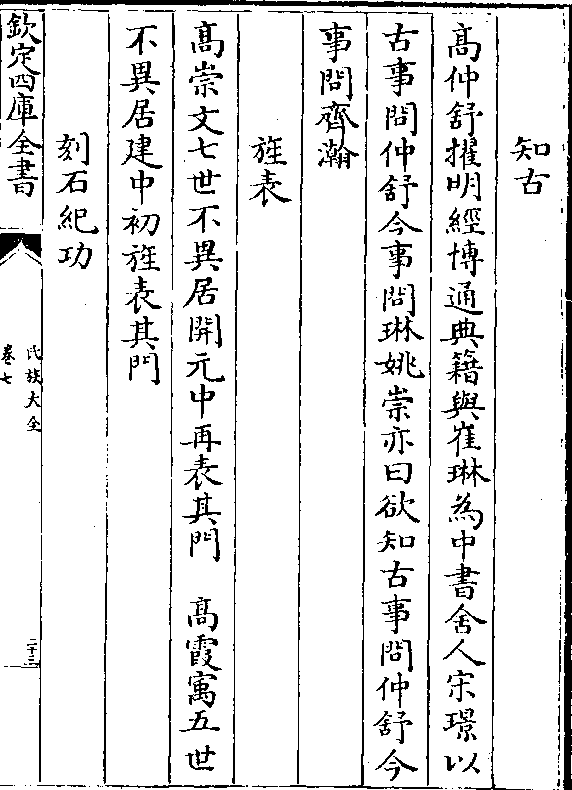 知古
髙仲舒擢明經博通典籍與崔琳為中書舍人宋璟以
古事問仲舒今事問琳姚崇亦曰欲知古事問仲舒今
事問齊瀚
旌表
髙崇文七世不異居開元中再表其門　髙霞寓五世
不異居建中初旌表其門
刻石紀功
欽定四庫全書
氏族大全
卷七
二十三